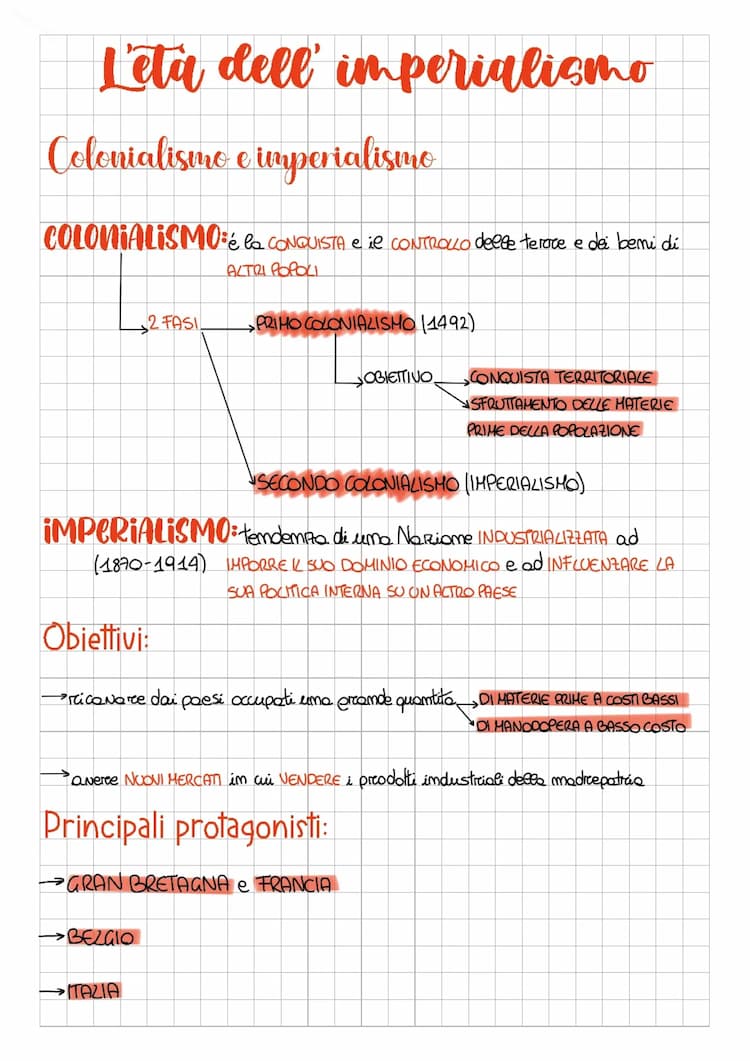 L'età dell' imperialismo
Colonialismo e imperialismo
COLONIALISMO: é la CONQUISTA e il CONTROLLO delle terre e dei beni di
ALTRI POPOLI
2 FASI → PRIMO COLONIALISMO (1492)
→ OBIETTIVO → CONQUISTA TERRITORIALE
→ SFRUTTAMENTO DELLE MATERIE
PRIME DELLA POPOLAZIONE
SECONDO COLONIALISMO (IMPERIALISMO)
IMPERIALISMO: tendenza di una Nazione INDUSTRIALIZZATA ad
(1870-1914) IMPORRE IL SUO DOMINIO ECONOMICO e ad INFLUENZARE LA
SUA POLITICA INTERNA SU UN ALTRO PAESE
Obiettivi:
→ ricavare dai paesi occupati una grande quantità → DI MATERIE PRIME A COSTI BASSI
→ DI MANODOPERA A BASSO COSTO
→ avere NUOVI MERCATI in cui VENDERE i prodotti industriali della madrepatria
Principali protagonisti:
→ GRAN BRETAGNA e FRANCIA
→ BELGIO
→ ITALIA